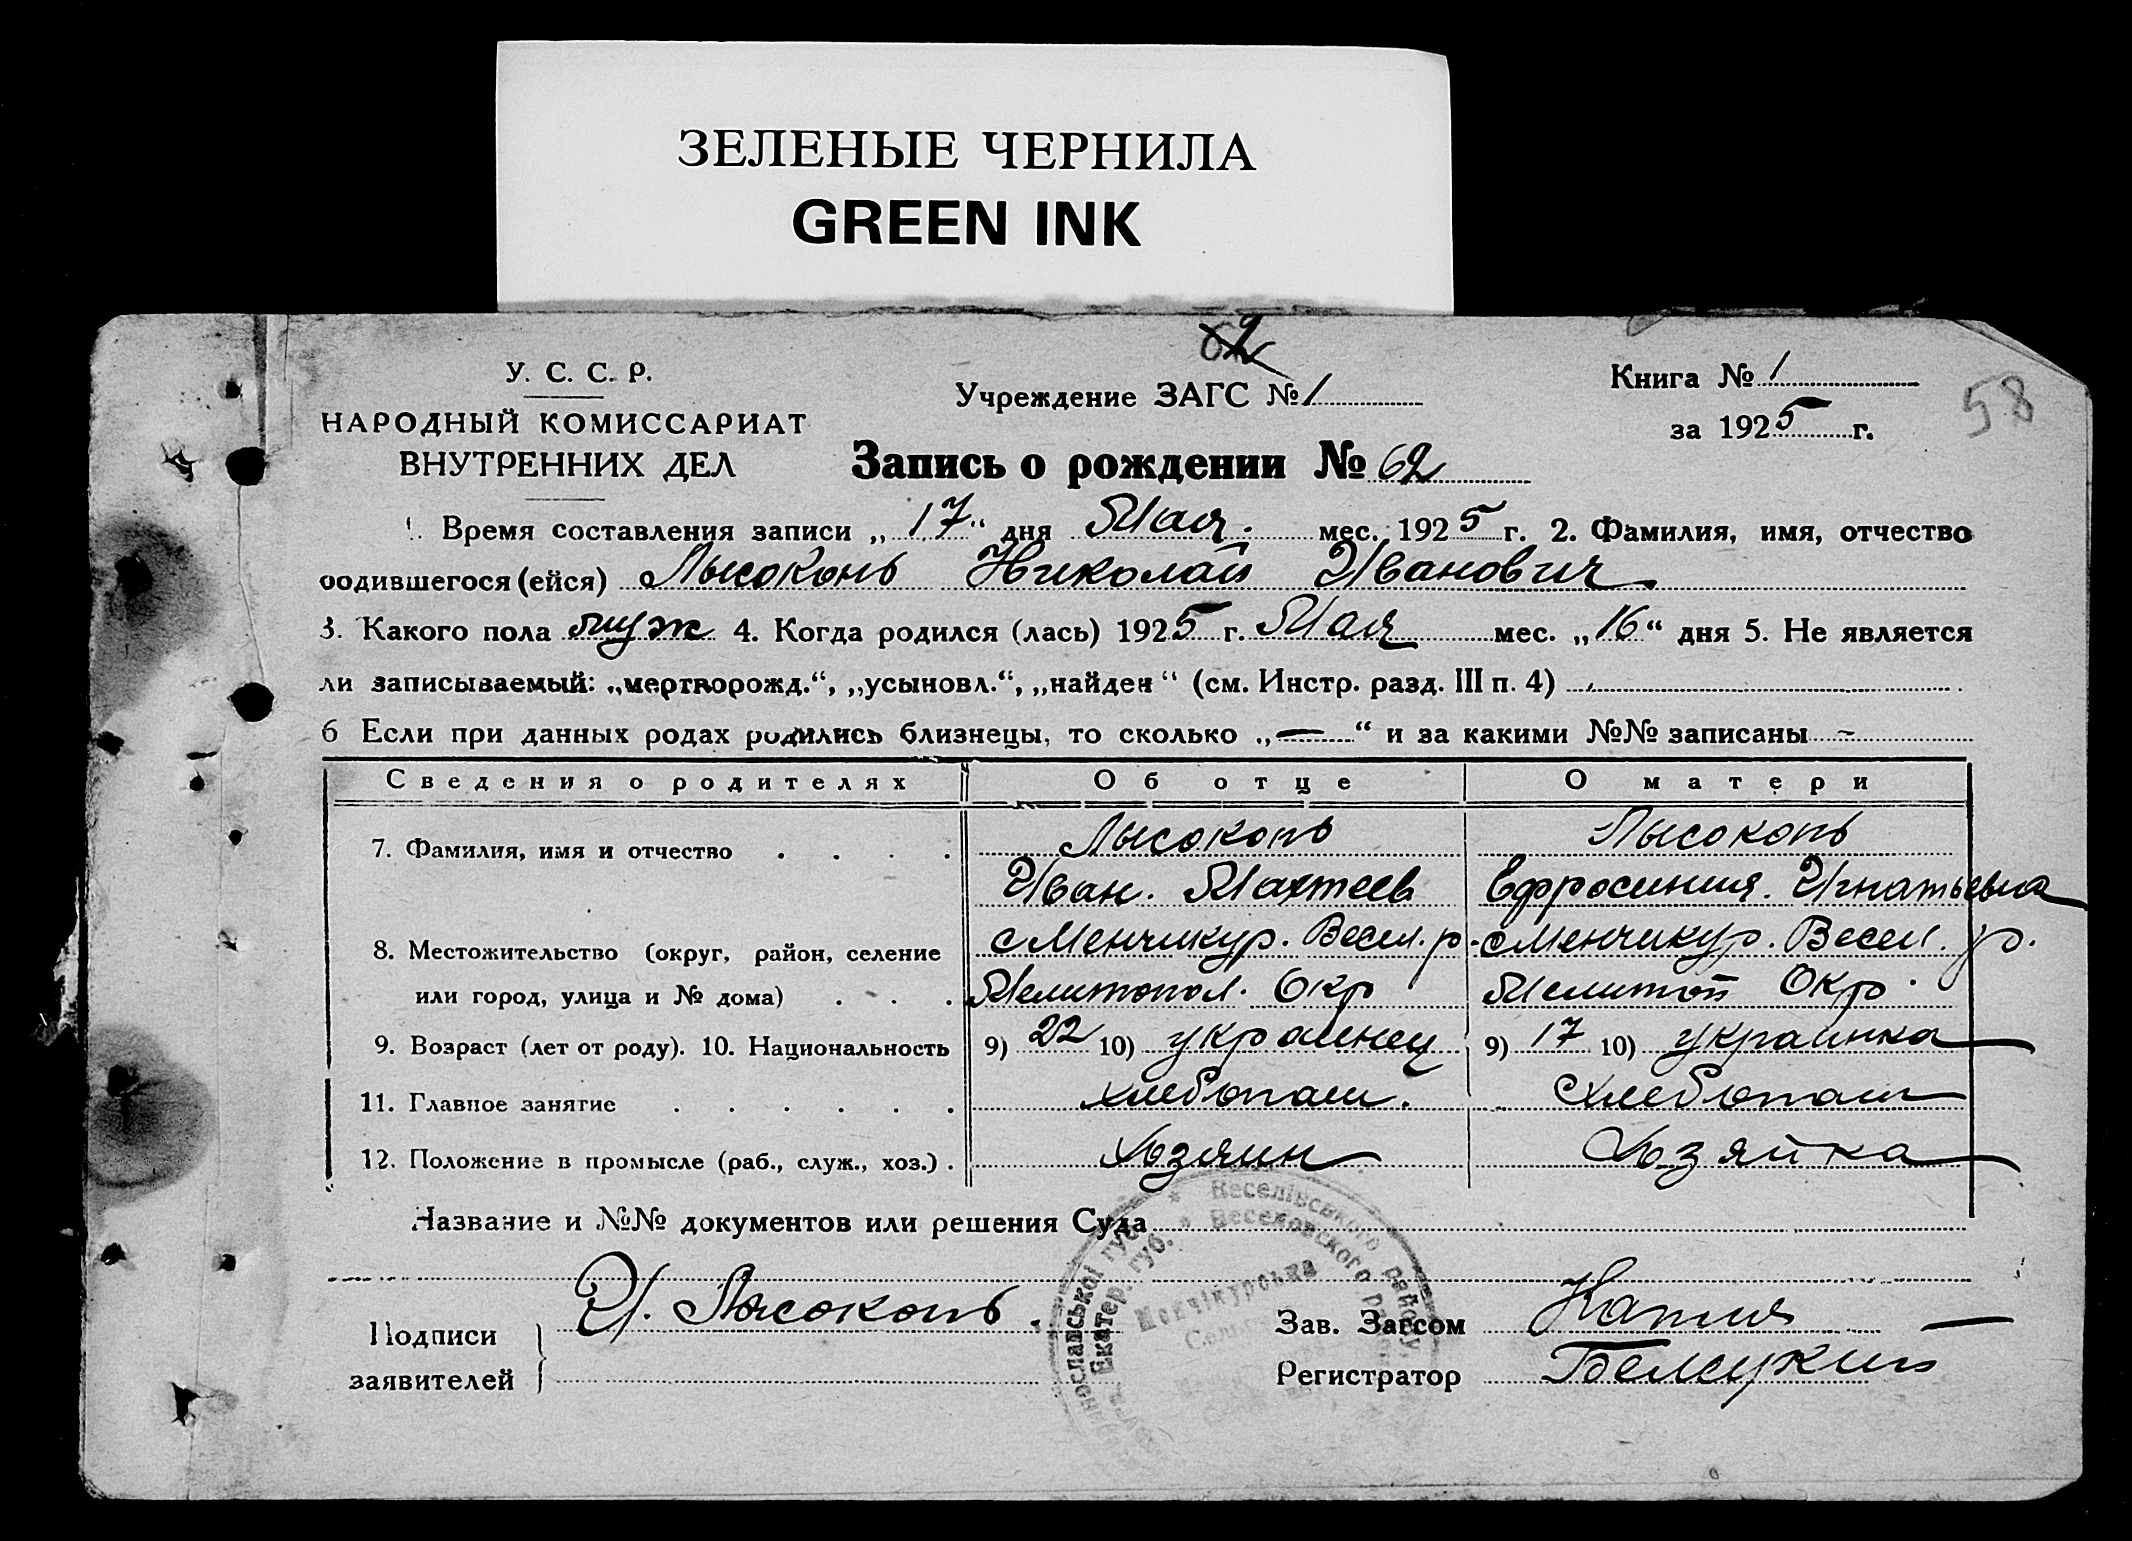 ЗЕЛЕНЫЕ ЧЕРНИЛА
GREEN INK
У. С. С. Р.
НАРОДНЫЙ КОМИССАРИАТ
ВНУТРЕННИХ ДЕЛ
Учреждение ЗАГС № 1
Книга № 1
за 1925 г.
58
Запись о рождении № 62
1. Время составления записи „17“ дня Мая. мес. 1925 г. 2. Фамилия, имя, отчество
родившегося (ейся) Лысоконь Николай Иванович.
3. Какого пола муж 4. Когда родился (лась) 1925 г. Мая мес. „16“ дня 5. Не является
ли записываемый: „мертворожд.“, „усыновл.“, „найден“ (см. Инстр. разд. III п. 4)
6 Если при данных родах родились близнецы, то сколько „—“ и за какими №№ записаны -
Сведения о родителях Об отце О матери
7. Фамилия, имя и отчество Лысоконь Лысоконь
Иван. Махтеев Ефросиния. Игнатьевна
8. Местожительство (округ, район, селение с Менчикур. Весел. р. с Менчикур. Весел. р.
или город, улица и № дома) Мелитопол. Окр Мелитоп Окр.
9. Возраст (лет от роду). 10. Национальность 9) 22 10) украинец 9) 17 10) украинка
11. Главное занятие хлебопаш. хлебопаш
12. Положение в промысле (раб., служ., хоз.). Хозяин Хозяйка
Название и №№ документов или решения Суда
Подписи заявителей И. Лысоконь.
Зав. Загсом
Регистратор
Веселівського району
Веселовского
Екатер. губ.
Менчікурська